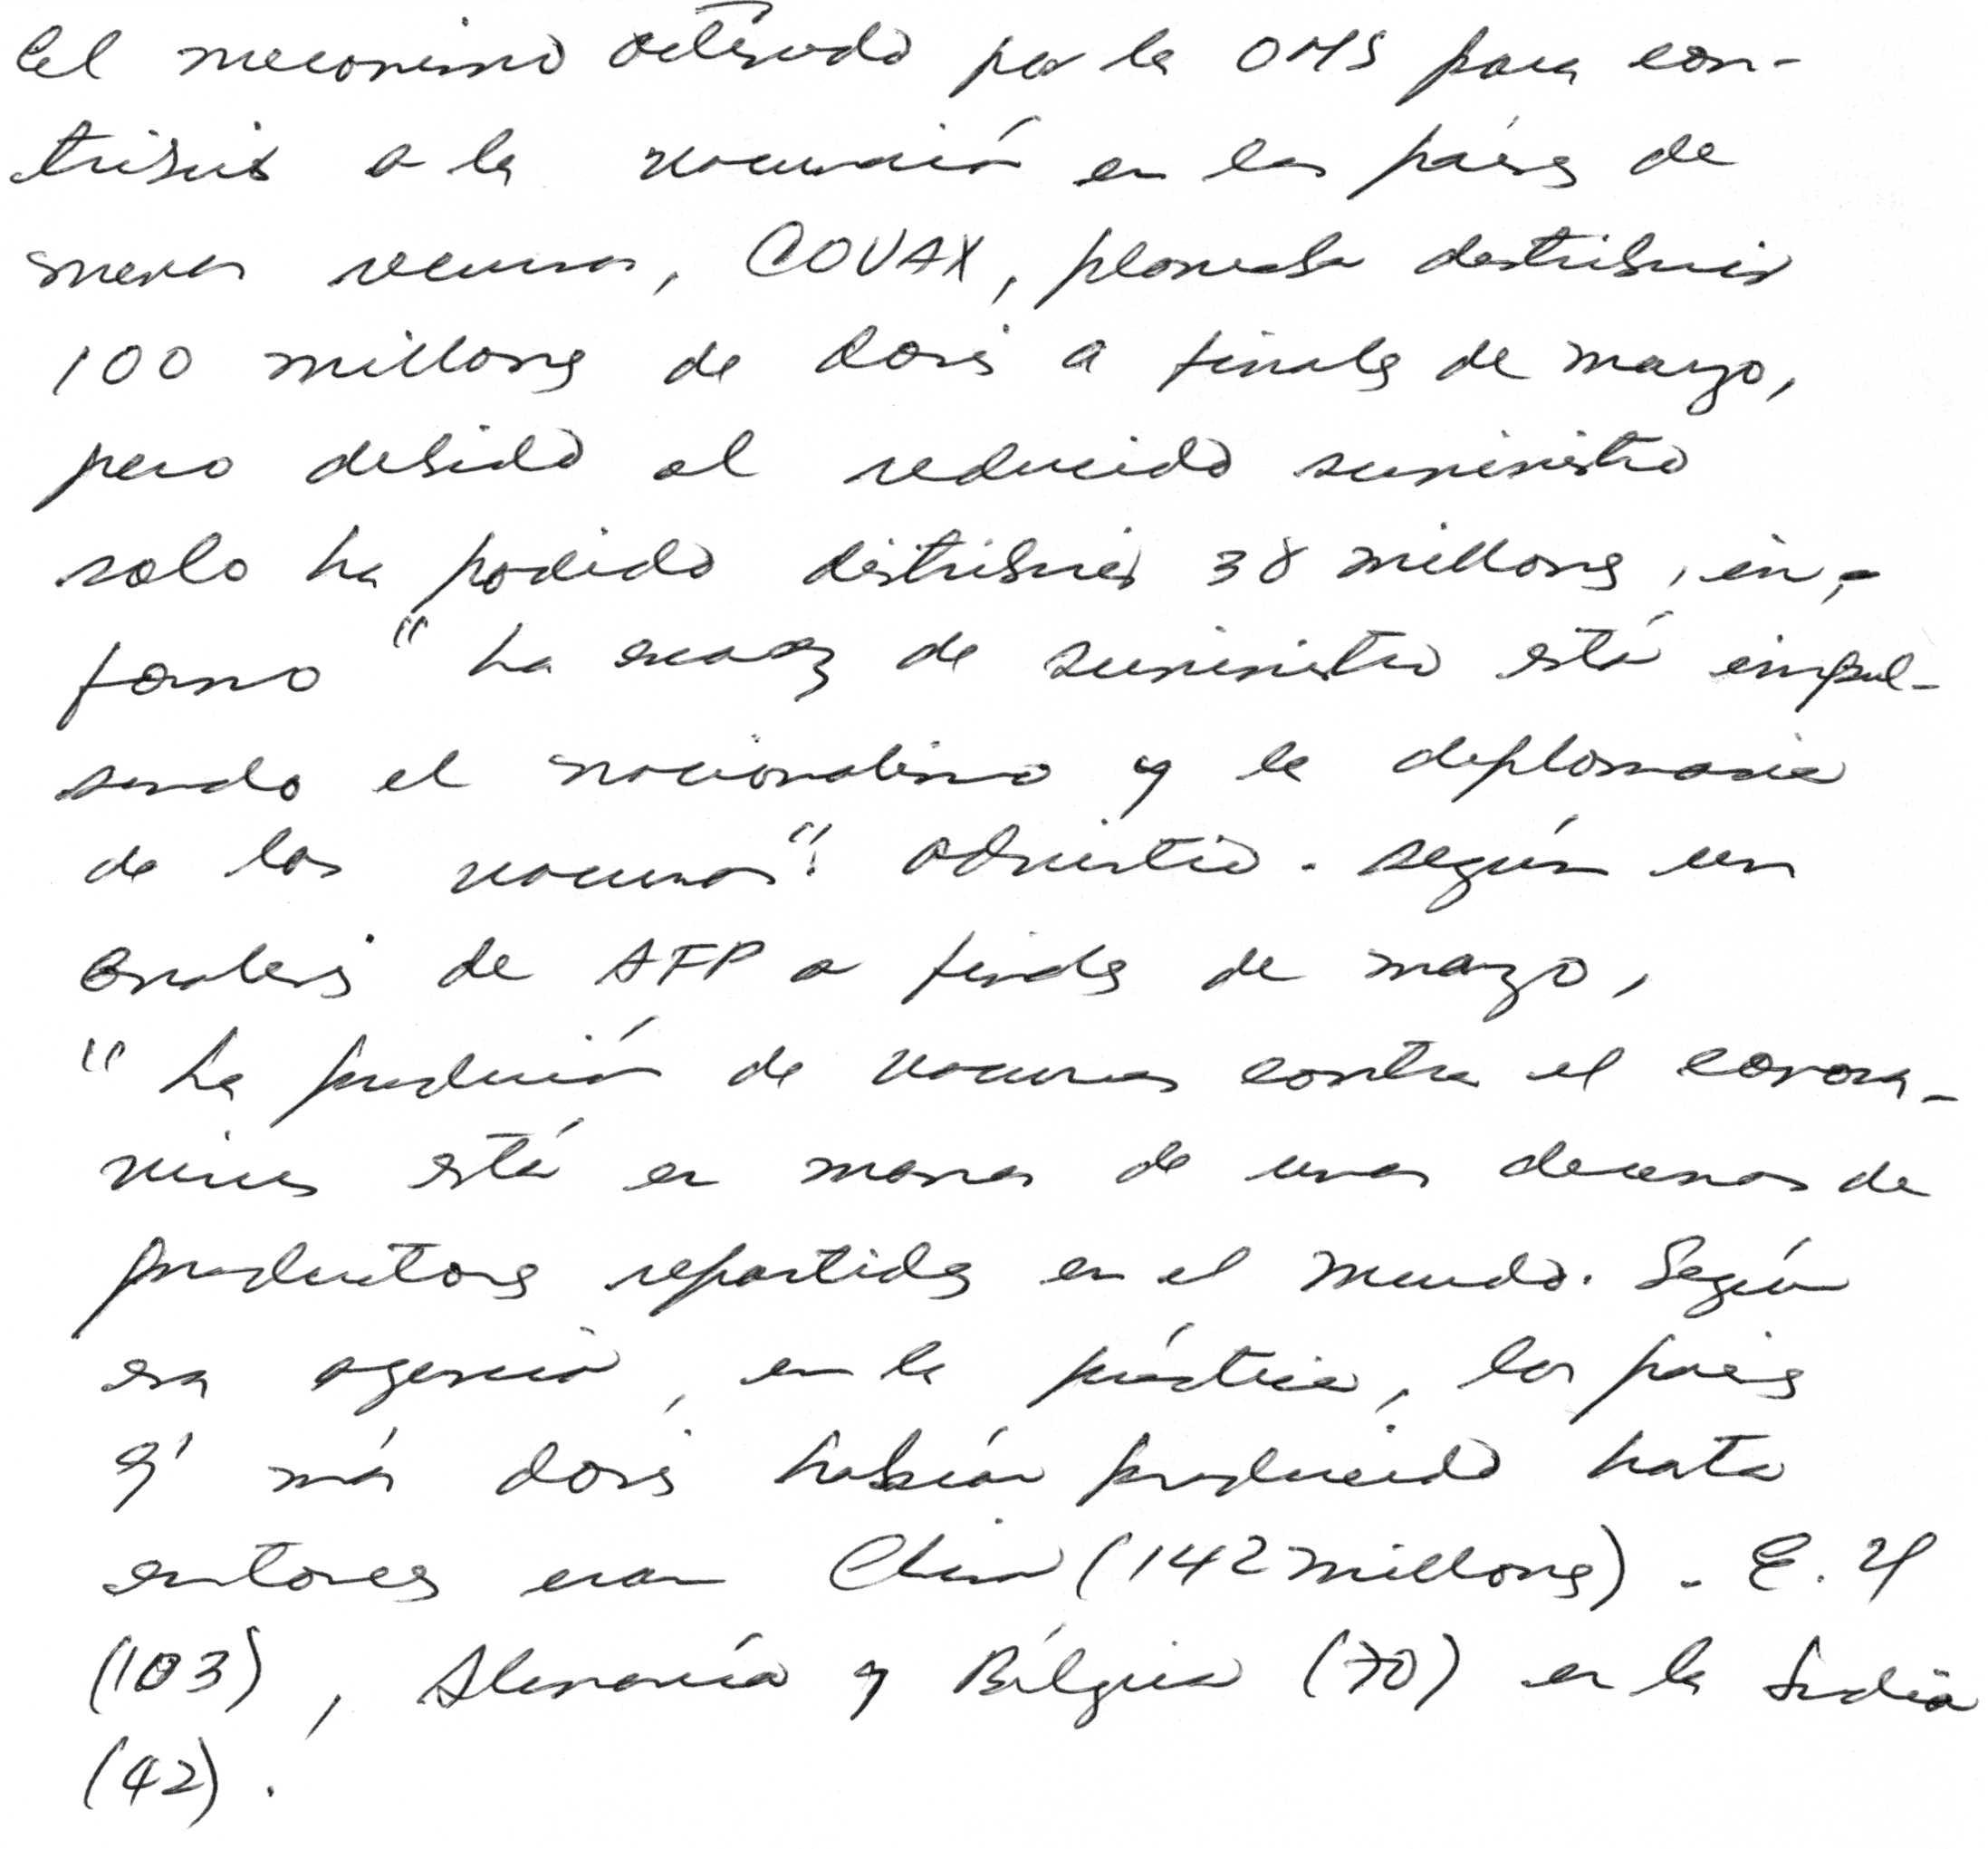 El mecanismo activado por la OMS para con-
tribuir a la vacunación en los países de
menos recursos, COVAX, planeaba distribuir
100 millones de dosis a finales de marzo,
pero debido al reducido suministro
solo ha podido distribuir 38 millones, in-
formó "La escasez de suministro está impul-
sando el nacionalismo y la diplomacia
de las vacunas". advirtió. según un
análisis de AFP a finales de marzo,
"La producción de vacunas contra el corona-
virus está en manos de unas decenas de
productores repartidos en el mundo. Según
esa agencia, en la práctica, los países
q' más dosis habían producido hasta
entonces eran China (142 millones). E. U
(103), Alemania y Bélgica (70) en la India
(42).